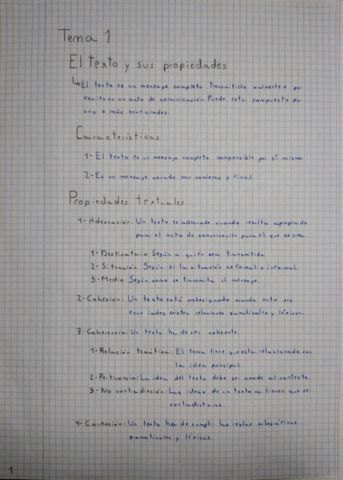 Tema 1
El texto y sus propiedades
↳ El texto es un mensaje completo transmitido oralmente o por
escrito en un acto de comunicación. Puede esta compuesto por
uno o más enunciados.
Características
1- El texto es un mensaje completo comprensible por sí mismo.
2- Es un mensaje cerrado con comienzo y final.
Propiedades textuales
1- Adecuación: Un texto es adecuado cuando resulta apropiado
para el acto de comunicación para el que se crea.
1- Destinatario Según a quién sea transmitido.
2- Situación Según si la situación es formal o informal.
3- Medio Según como se transmita el mensaje.
2- Cohesión: Un texto está cohesionado cuando entre sus
enunciados existen relaciones gramaticales y léxicas.
3- Coherencia: Un texto ha de ser coherente.
1- Relación temática: El tema tiene que estar relacionado con
la idea principal.
2- Pertinencia: La idea del texto debe ser acorde al contexto.
3- No contradicción: Las ideas de un texto no tienen que ser
contradictorias.
4- Corrección: Un texto ha de cumplir las reglas ortográficas
gramaticales y léxicas.
1